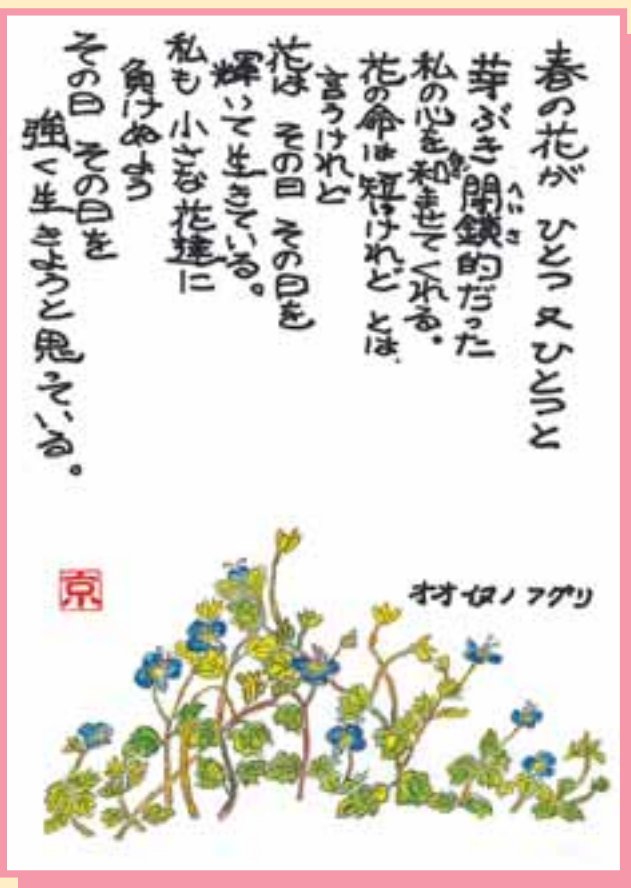 春の花が ひとつ 又ひとつと
芽ぶき 閉鎖的だった
へいさ
私の心を和ませてくれる。
花の命は短けれど とは、
言うけれど
花は その日 その日を
輝いて生きている。
私も 小さな花達に
負けぬよう
その日 その日を
強く生きようと思っている。
オオイヌノフグリ
京